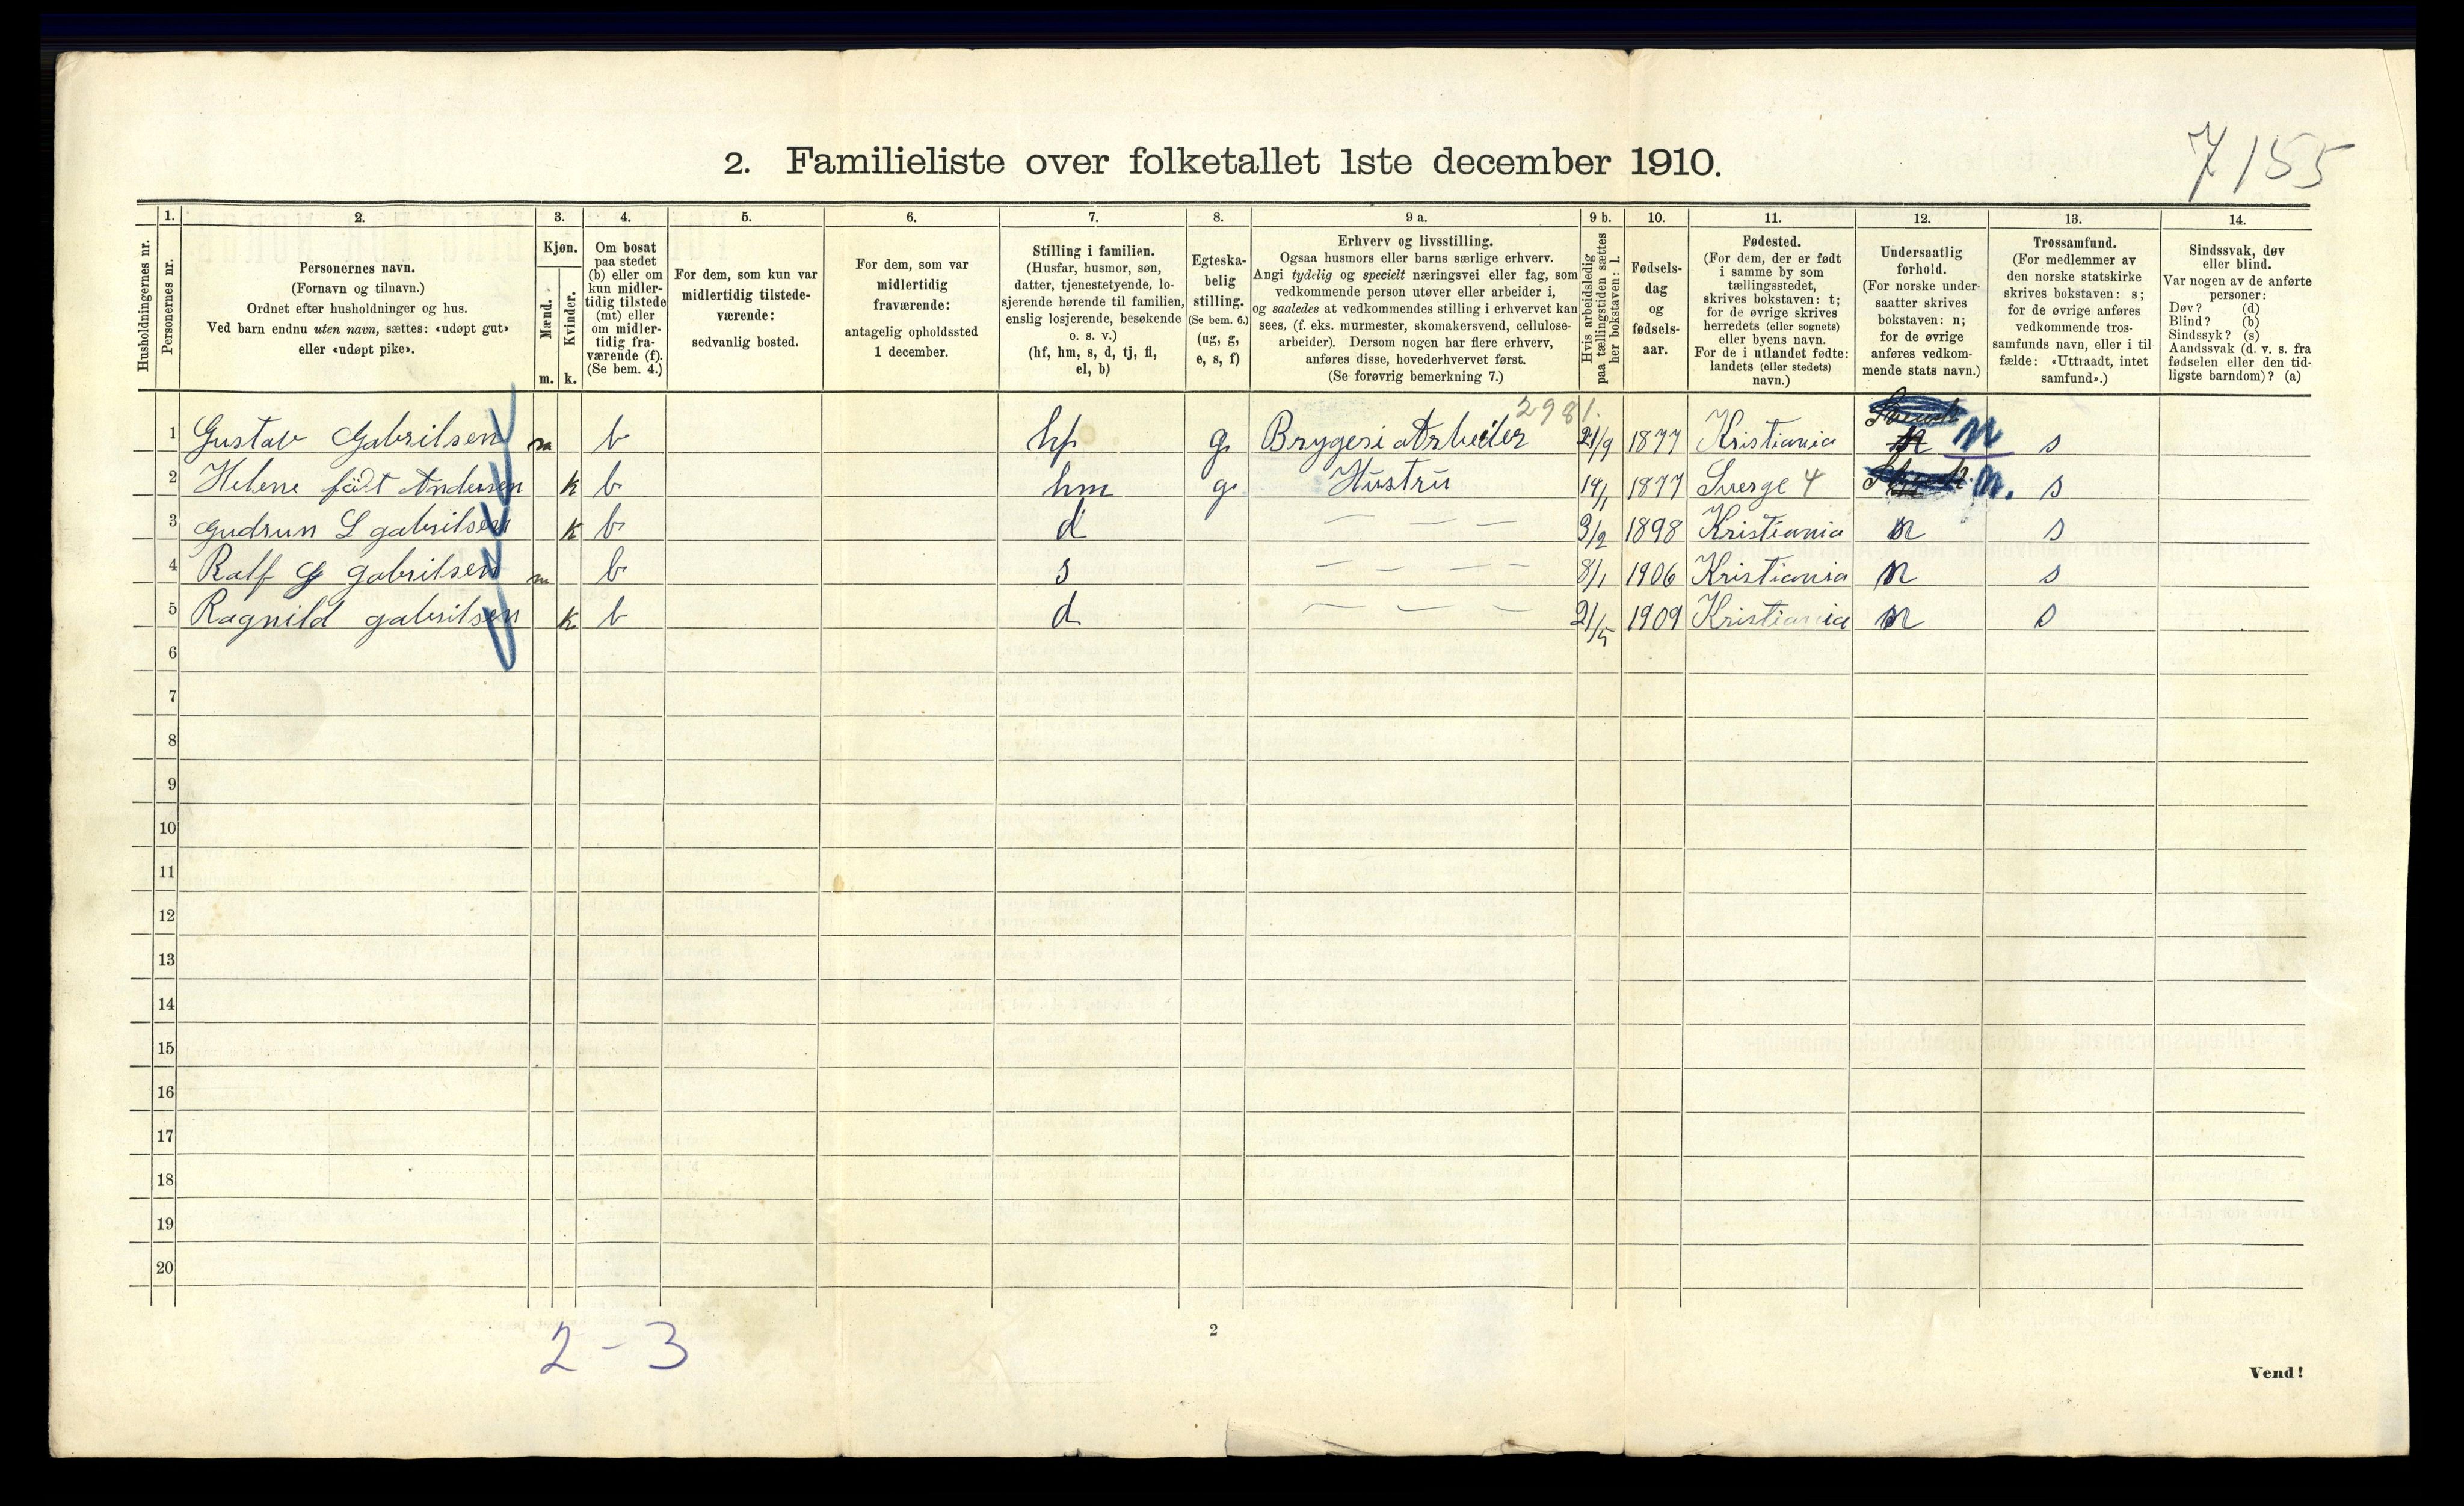 7155
2. Familieliste over folketallet 1ste december 1910.
Husholdningernes nr.
1. Personernes nr.
2. Personernes navn.
(Fornavn og tilnavn.)
Ordnet efter husholdninger og hus.
Ved barn endnu uten navn, sættes: «udøpt gut»
eller «udøpt pike».
3. Kjøn.
Mænd. m.
Kvinder. k.
4. Om bosat
paa stedet
(b) eller om
kun midler-
tidig tilstede
(mt) eller
om midler-
tidig fra-
værende (f).
(Se bem. 4.)
5. For dem, som kun var
midlertidig tilstede-
værende:
sedvanlig bosted.
6. For dem, som var
midlertidig
fraværende:
antagelig opholdssted
1 december.
7. Stilling i familien.
(Husfar, husmor, søn,
datter, tjenestetyende, lo-
sjerende hørende til familien,
enslig losjerende, besøkende
o. s. v.)
(hf, hm, s, d, tj, fl,
el, b)
8. Egteska-
belig
stilling.
(Se bem. 6.)
(ug, g,
e, s, f)
9 a. Erhverv og livsstilling.
Ogsaa husmors eller barns særlige erhverv.
Angi tydelig og specielt næringsvei eller fag, som
vedkommende person utøver eller arbeider i,
og saaledes at vedkommendes stilling i erhvervet kan
sees, (f. eks. murmester, skomakersvend, cellulose-
arbeider). Dersom nogen har flere erhverv,
anføres disse, hovederhvervet først.
(Se forøvrig bemerkning 7.)
9 b. Hvis arbeidsledig
paa tællingstiden sættes
her bokstaven: l.
10. Fødsels-
dag
og
fødsels-
aar.
11. Fødested.
(For dem, der er født
i samme by som
tællingsstedet,
skrives bokstaven: t;
for de øvrige skrives
herredets (eller sognets)
eller byens navn.
For de i utlandet fødte:
landets (eller stedets)
navn.)
12. Undersaatlig
forhold.
(For norske under-
saatter skrives
bokstaven: n;
for de øvrige
anføres vedkom-
mende stats navn.)
13. Trossamfund.
(For medlemmer av
den norske statskirke
skrives bokstaven: s;
for de øvrige anføres
vedkommende tros-
samfunds navn, eller i til
fælde: «Uttraadt, intet
samfund».)
14. Sindssvak, døv
eller blind.
Var nogen av de anførte
personer:
Døv? (d)
Blind? (b)
Sindssyk? (s)
Aandssvak (d. v. s. fra
fødselen eller den tid-
ligste barndom)? (a)
2981.
1 Gustav Gabrilsen m b hf g. Brygeri Arbeider 21/9 1877 Kristiania n n s
2 Helene født Andersen k b hm g. Hustru 14/1 1877 Sverge 4 n. s
3 Gudrun L gabrilsen k b d — — — 3/2 1898 Kristiania n s
4 Ralf G gabrilsen m b s — — — — 8/1 1906 Kristiania n s
5 Ragnild gabrilsen k b d — — — 21/5 1909 Kristiania n s
6
7
8
9
10
11
12
13
14
15
16
17
18
19
20
2-3
2
Vend!